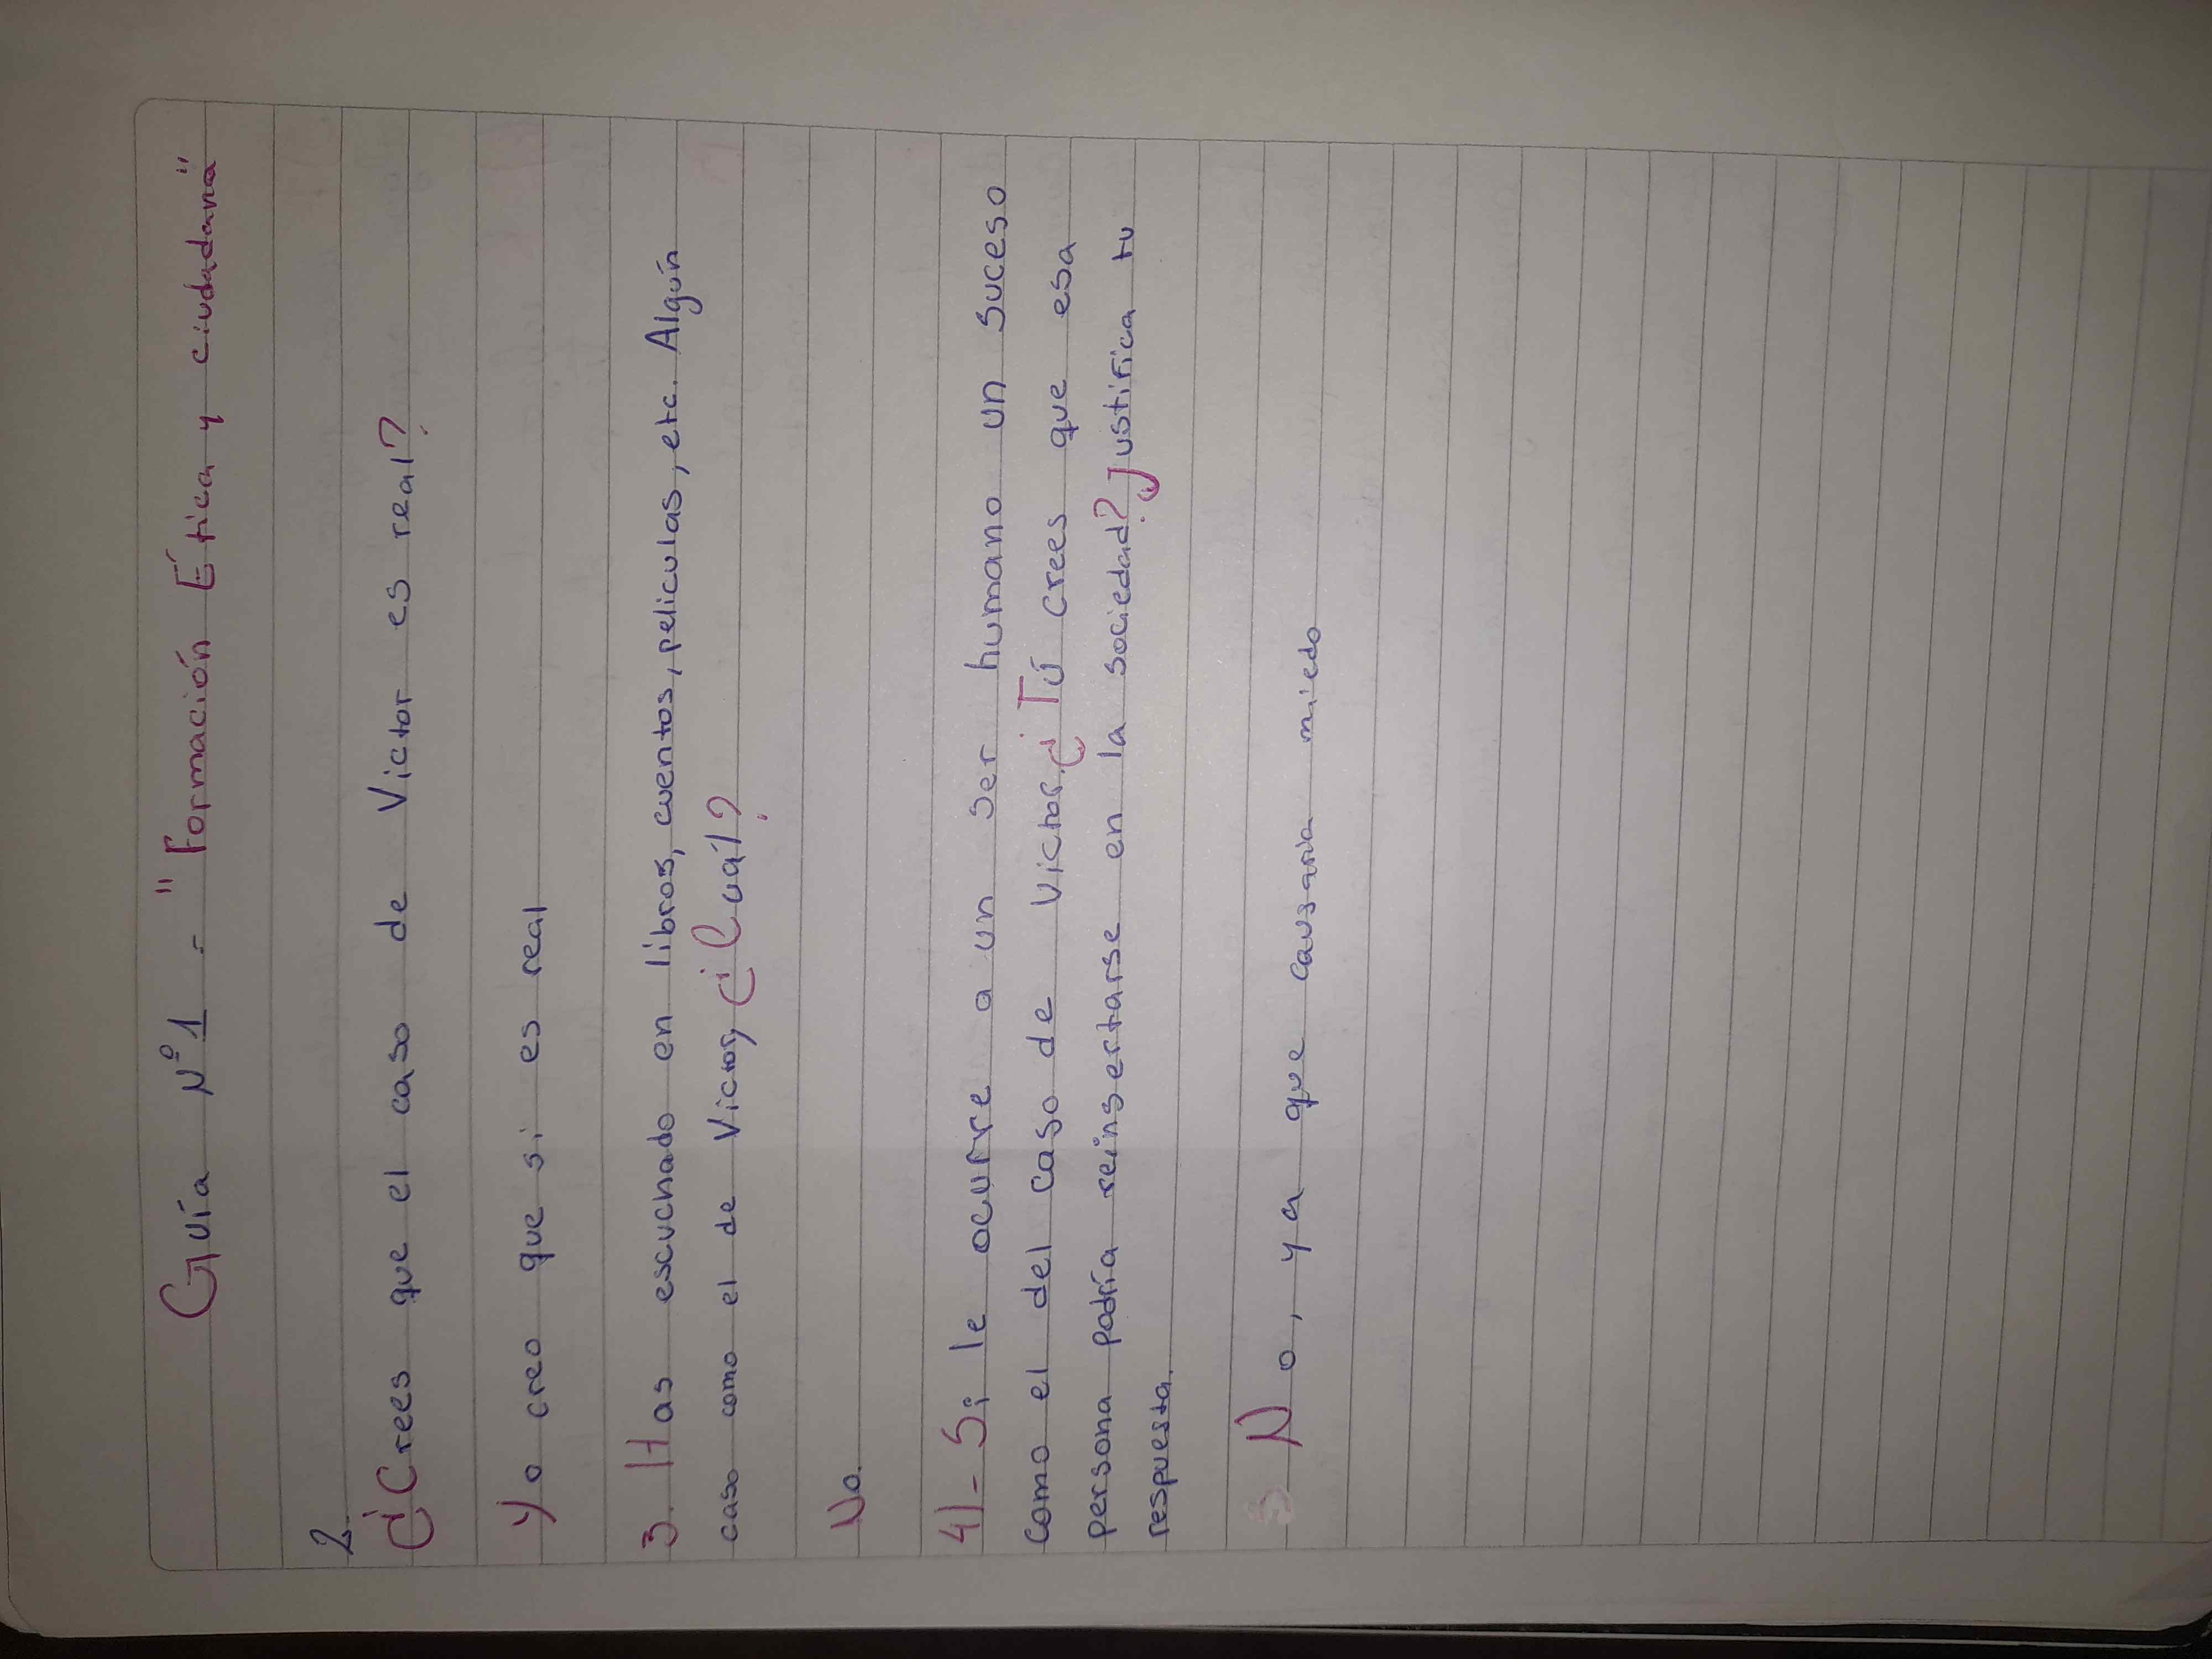 Guía Nº1 - "Formación Ética y ciudadana"
2.
¿Crees que el caso de Victor es real?
Yo creo que si es real
3. Has escuchado en libros, cuentos, peliculas, etc. Algún
caso como el de Victor, ¿Cuál?
No.
4)- Si le ocurre a un ser humano un suceso
como el del caso de Victor. ¿Tú crees que esa
persona podría reinsertarse en la sociedad? Justifica tu
respuesta.
No, ya que causaria miedo